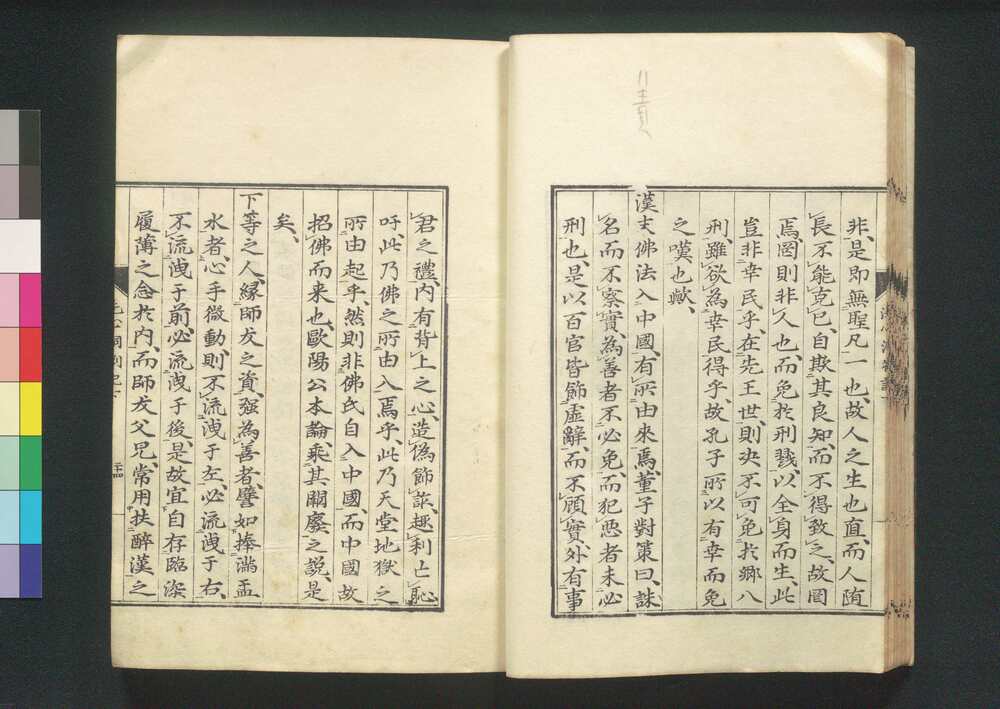 非、是即無聖凡一也、故人之生也直、而人随
長、不能克己、自欺其良知、而不得致之、故罔
焉、罔則非人也、而免於刑戮、以全身而生、此
豈非幸民乎、在先王世、則決不可免於鄉八
刑、雖欲為幸民得乎、故孔子所以有幸而免
之嘆也歟、
漢夫佛法入中國、有所由來焉、董子對策曰、誅
名而不察實、為善者不必免、而犯惡者未必
刑也、是以百官皆飾虛辭、而不顧實、外有事
君之禮、內有背上之心、造偽飾詐、趣利亡恥、
吁、此乃佛之所由入焉乎、此乃天堂地獄之
所由起乎、然則非佛氏自入中國、而中國故
招佛而来也、歐陽公本論、乘其闕廢之說、是
矣、
下等之人、緣師友之資、强為善者、譬如捧滿盂
水者、心手微動則不流洩于左、必流洩于右、
不流洩于前、必流洩于後、是故宜自存臨深
履薄之念於內、而師友父兄、常用扶醉漢之